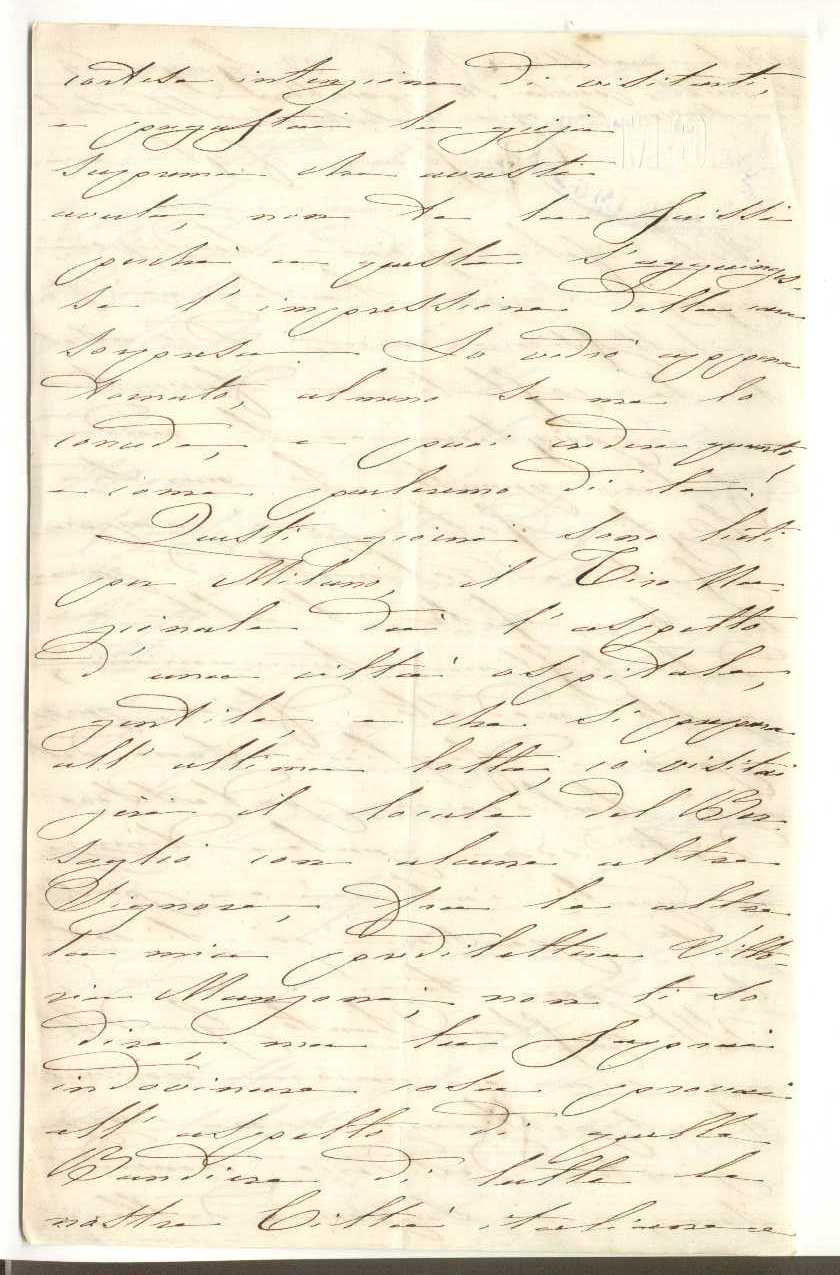 cortese intenzione di visitarti,
e pregustai la gioja
suprema che avresti
avuta, non te la scrissi
perchè a questa s'aggiunges-
se l'impressione della cara
sorpresa. Lo vedrò appena
tornato, almeno se me lo
concede, e puoi credere quanto,
e come parleremo di te!
Questi giorni sono lieti
per Milano, il Tiro Na-
zionale dà l'aspetto
d'una città ospitale,
gentile, e che si prepara
all'ultima lotta, io visitai
jeri il locale del Ber-
saglio con alcune altre
Signore, fra le altre
la mia prediletta Vitto-
ria Manzoni, non ti so
dire, ma tu saprai
indovinare cosa provai
all'aspetto di quelle
Bandiere di tutte le
nostre Città italiane e